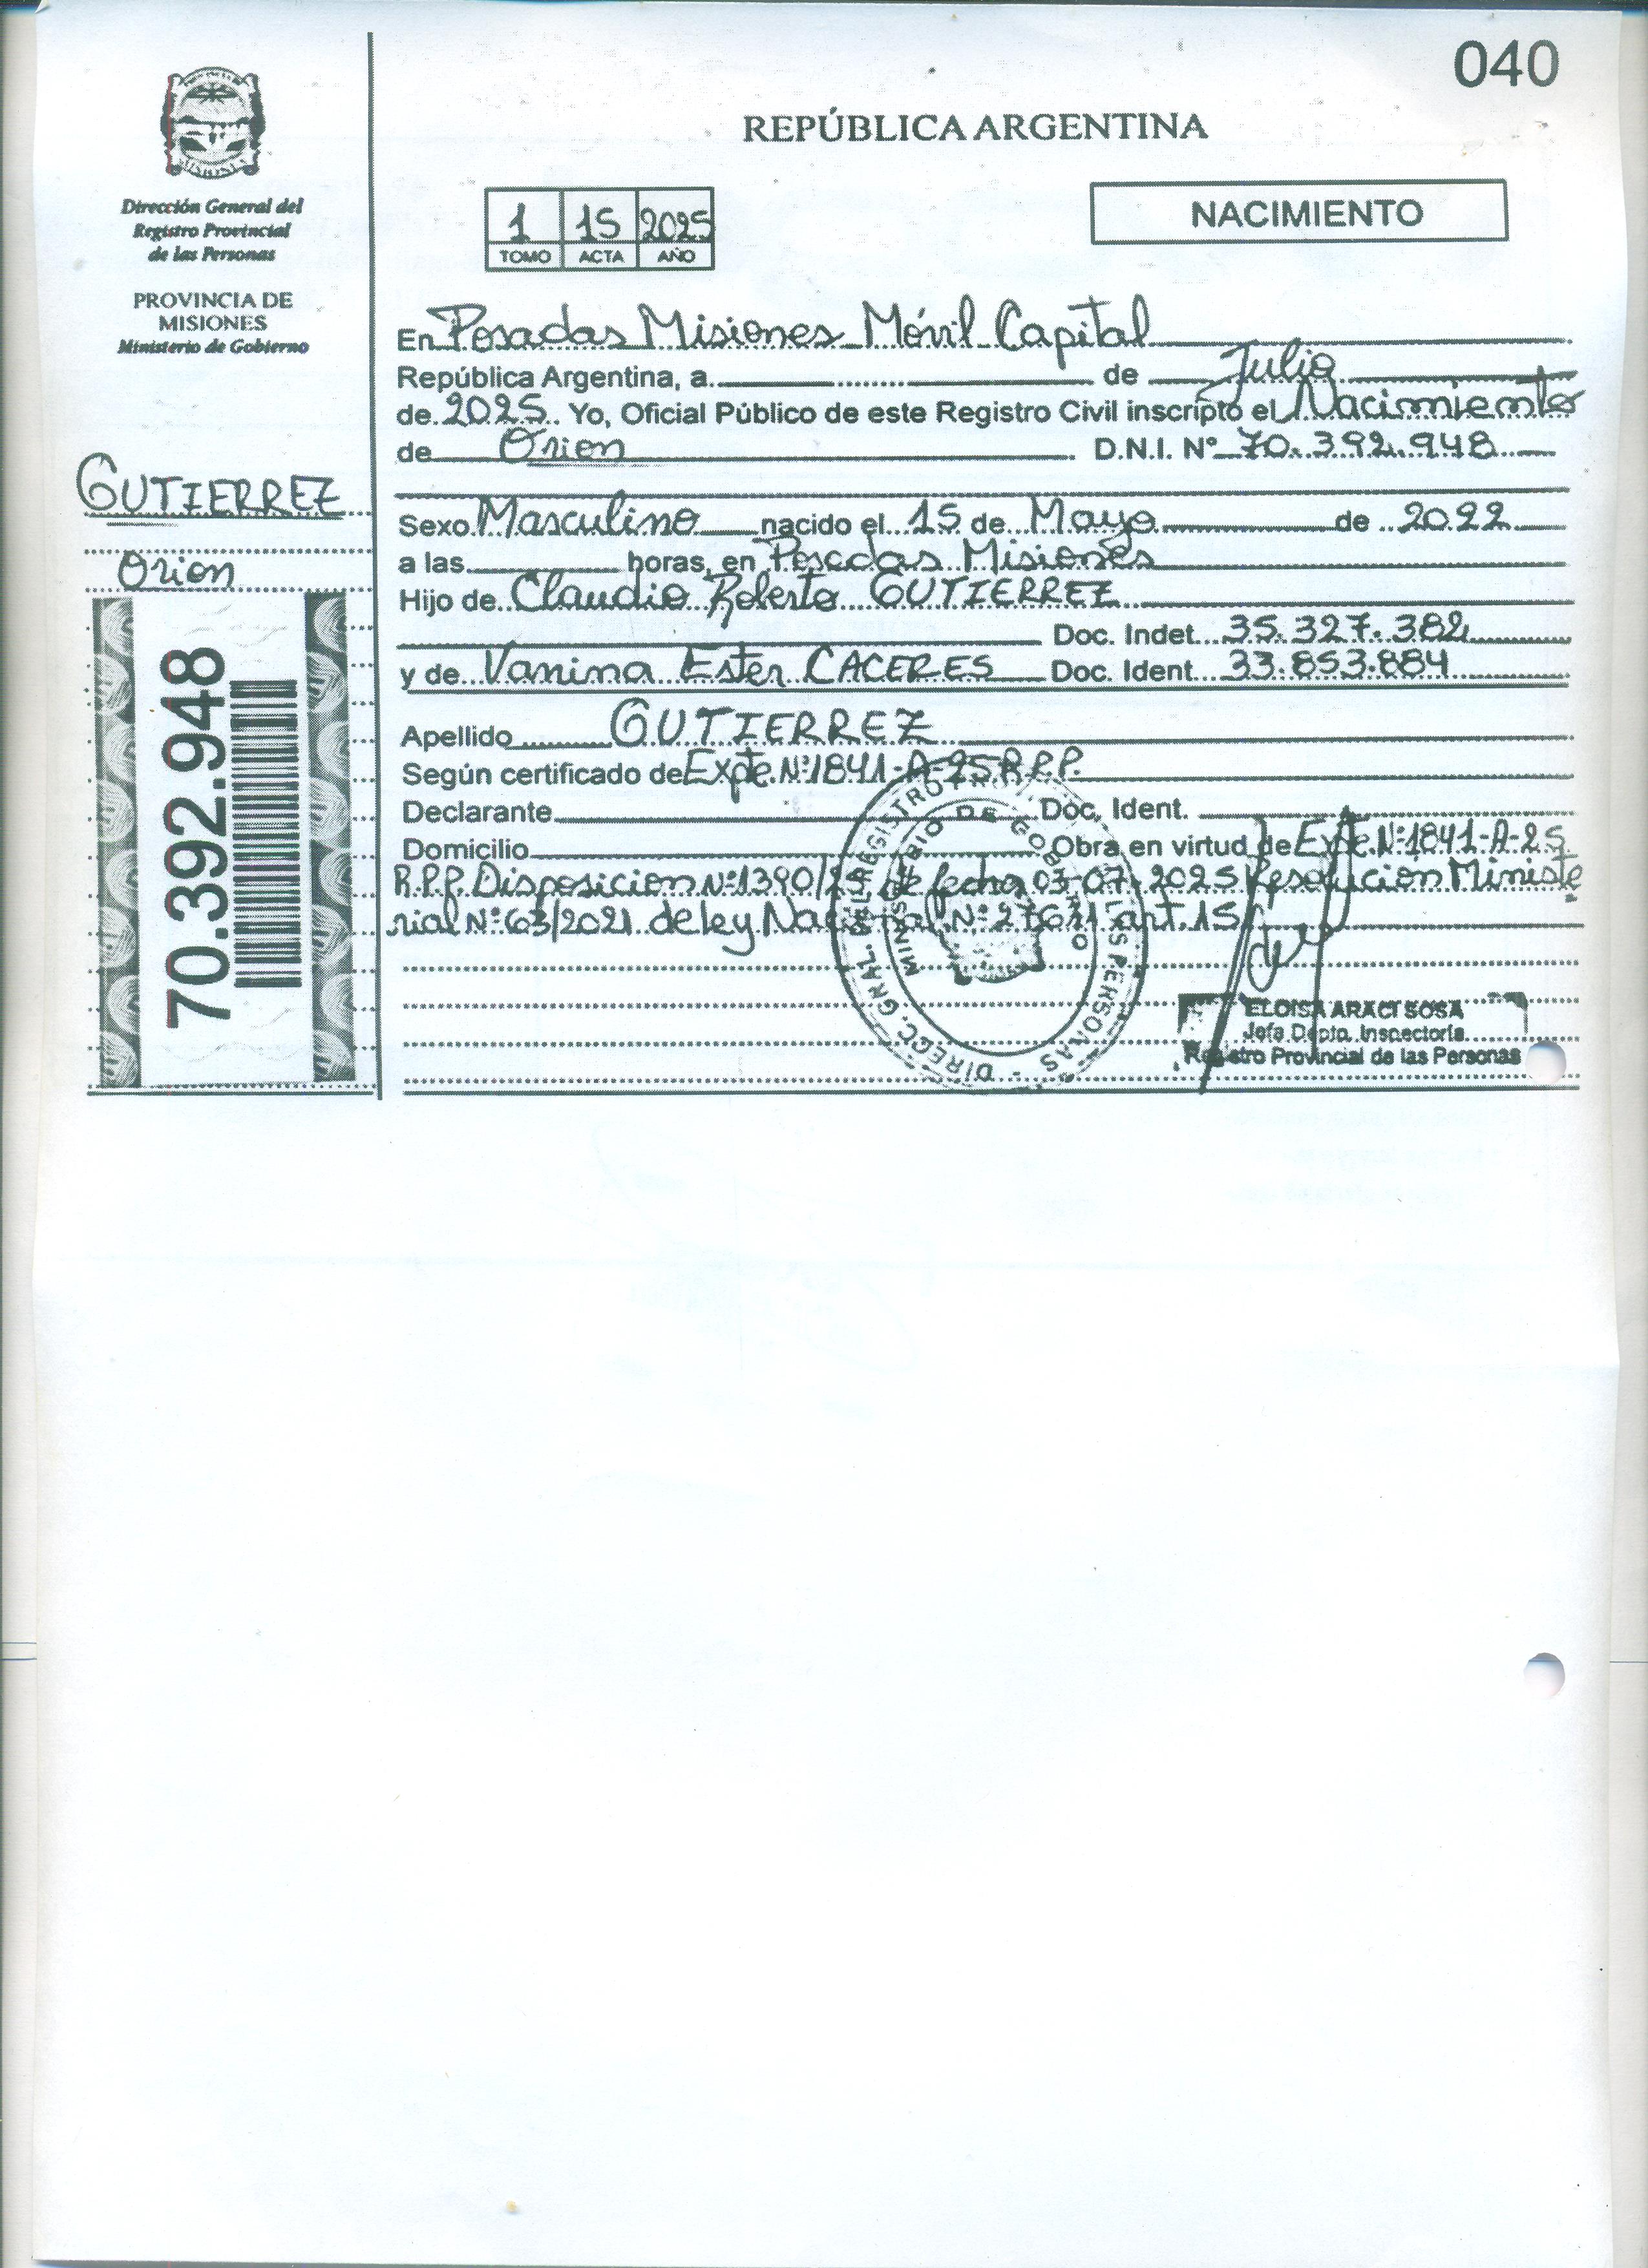 040
REPÚBLICA ARGENTINA
Dirección General del
Registro Provincial
de las Personas
PROVINCIA DE
MISIONES
Ministerio de Gobierno
1 15 2025
TOMO ACTA AÑO
NACIMIENTO
En Posadas Misiones Móvil Capital
República Argentina, a de Julio
de 2025 Yo, Oficial Público de este Registro Civil inscripto el Nacimiento
de Orion D.N.I. N° 70.392.948
GUTIERREZ
Orion
70.392.948
Sexo Masculino nacido el 15 de Mayo de 2022
a las horas, en Posadas Misiones
Hijo de Claudio Roberto GUTIERREZ
Doc. Indet. 35.327.382
y de Vanina Ester CACERES Doc. Ident. 33.853.884
Apellido GUTIERREZ
Según certificado de Expte. N°1841-A-25 R.P.P.
Declarante Doc. Ident.
Domicilio Obra en virtud de Expte. N°1841-A-25
R.P.P. Disposicion N°1390/2 de fecha 03-07-2025 Resolución Ministe
rial N°63/2021 de ley Nacional N° 27611 art. 15
DIRECC. GRAL. DEL REGISTRO PROV. DE LAS PERSONAS
MINISTERIO DE GOBIERNO
ELOISA ARACI SOSA
Jefa Depto. Inspectoría
Registro Provincial de las Personas